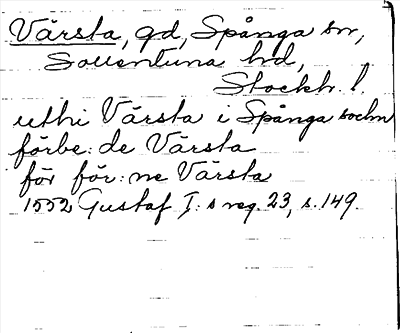 Värsta, gd, Spånga sn,
Sollentuna hd,
Stockh. l.
uthi Värsta i Spånga sochn
förbe: de Värsta
för för: ne Värsta
1552 Gustaf I: s reg. 23, s. 149.